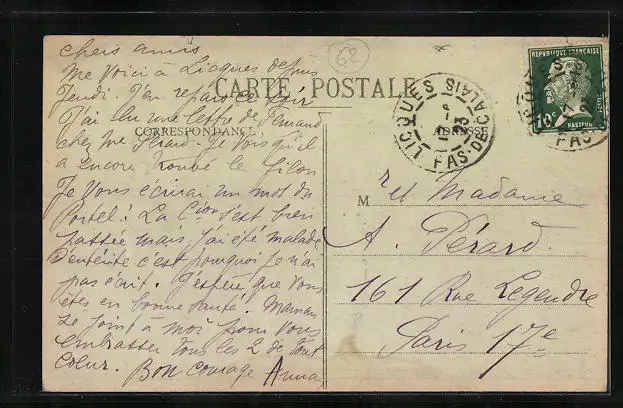 62
CARTE POSTALE
CORRESPONDANCE
ADRESSE
REPUBLIQUE FRANÇAISE
10c
POSTES
PASTEUR
LICQUES
PAS-DE-CALAIS
23
chers amis
me voici à Licques depuis
Jeudi. J'ai repars ce soir
J'ai lu une lettre de Fernand
chez Me Pérard. Je vois qu'il
a encore trouvé le filon
Je vous écrirai un mot du
Portel! La s'est bien
passée mais j'ai été malade
d'entérite c'est pourquoi je n'ai
pas écrit. J'espère que vous
êtes en bonne santé. Maman
se joint à moi pour vous
embrasser tous les 2 de tout
cœur. Bon courage Anna
M r et Madame
A. Pérard.
161 Rue Legendre
Paris 17e